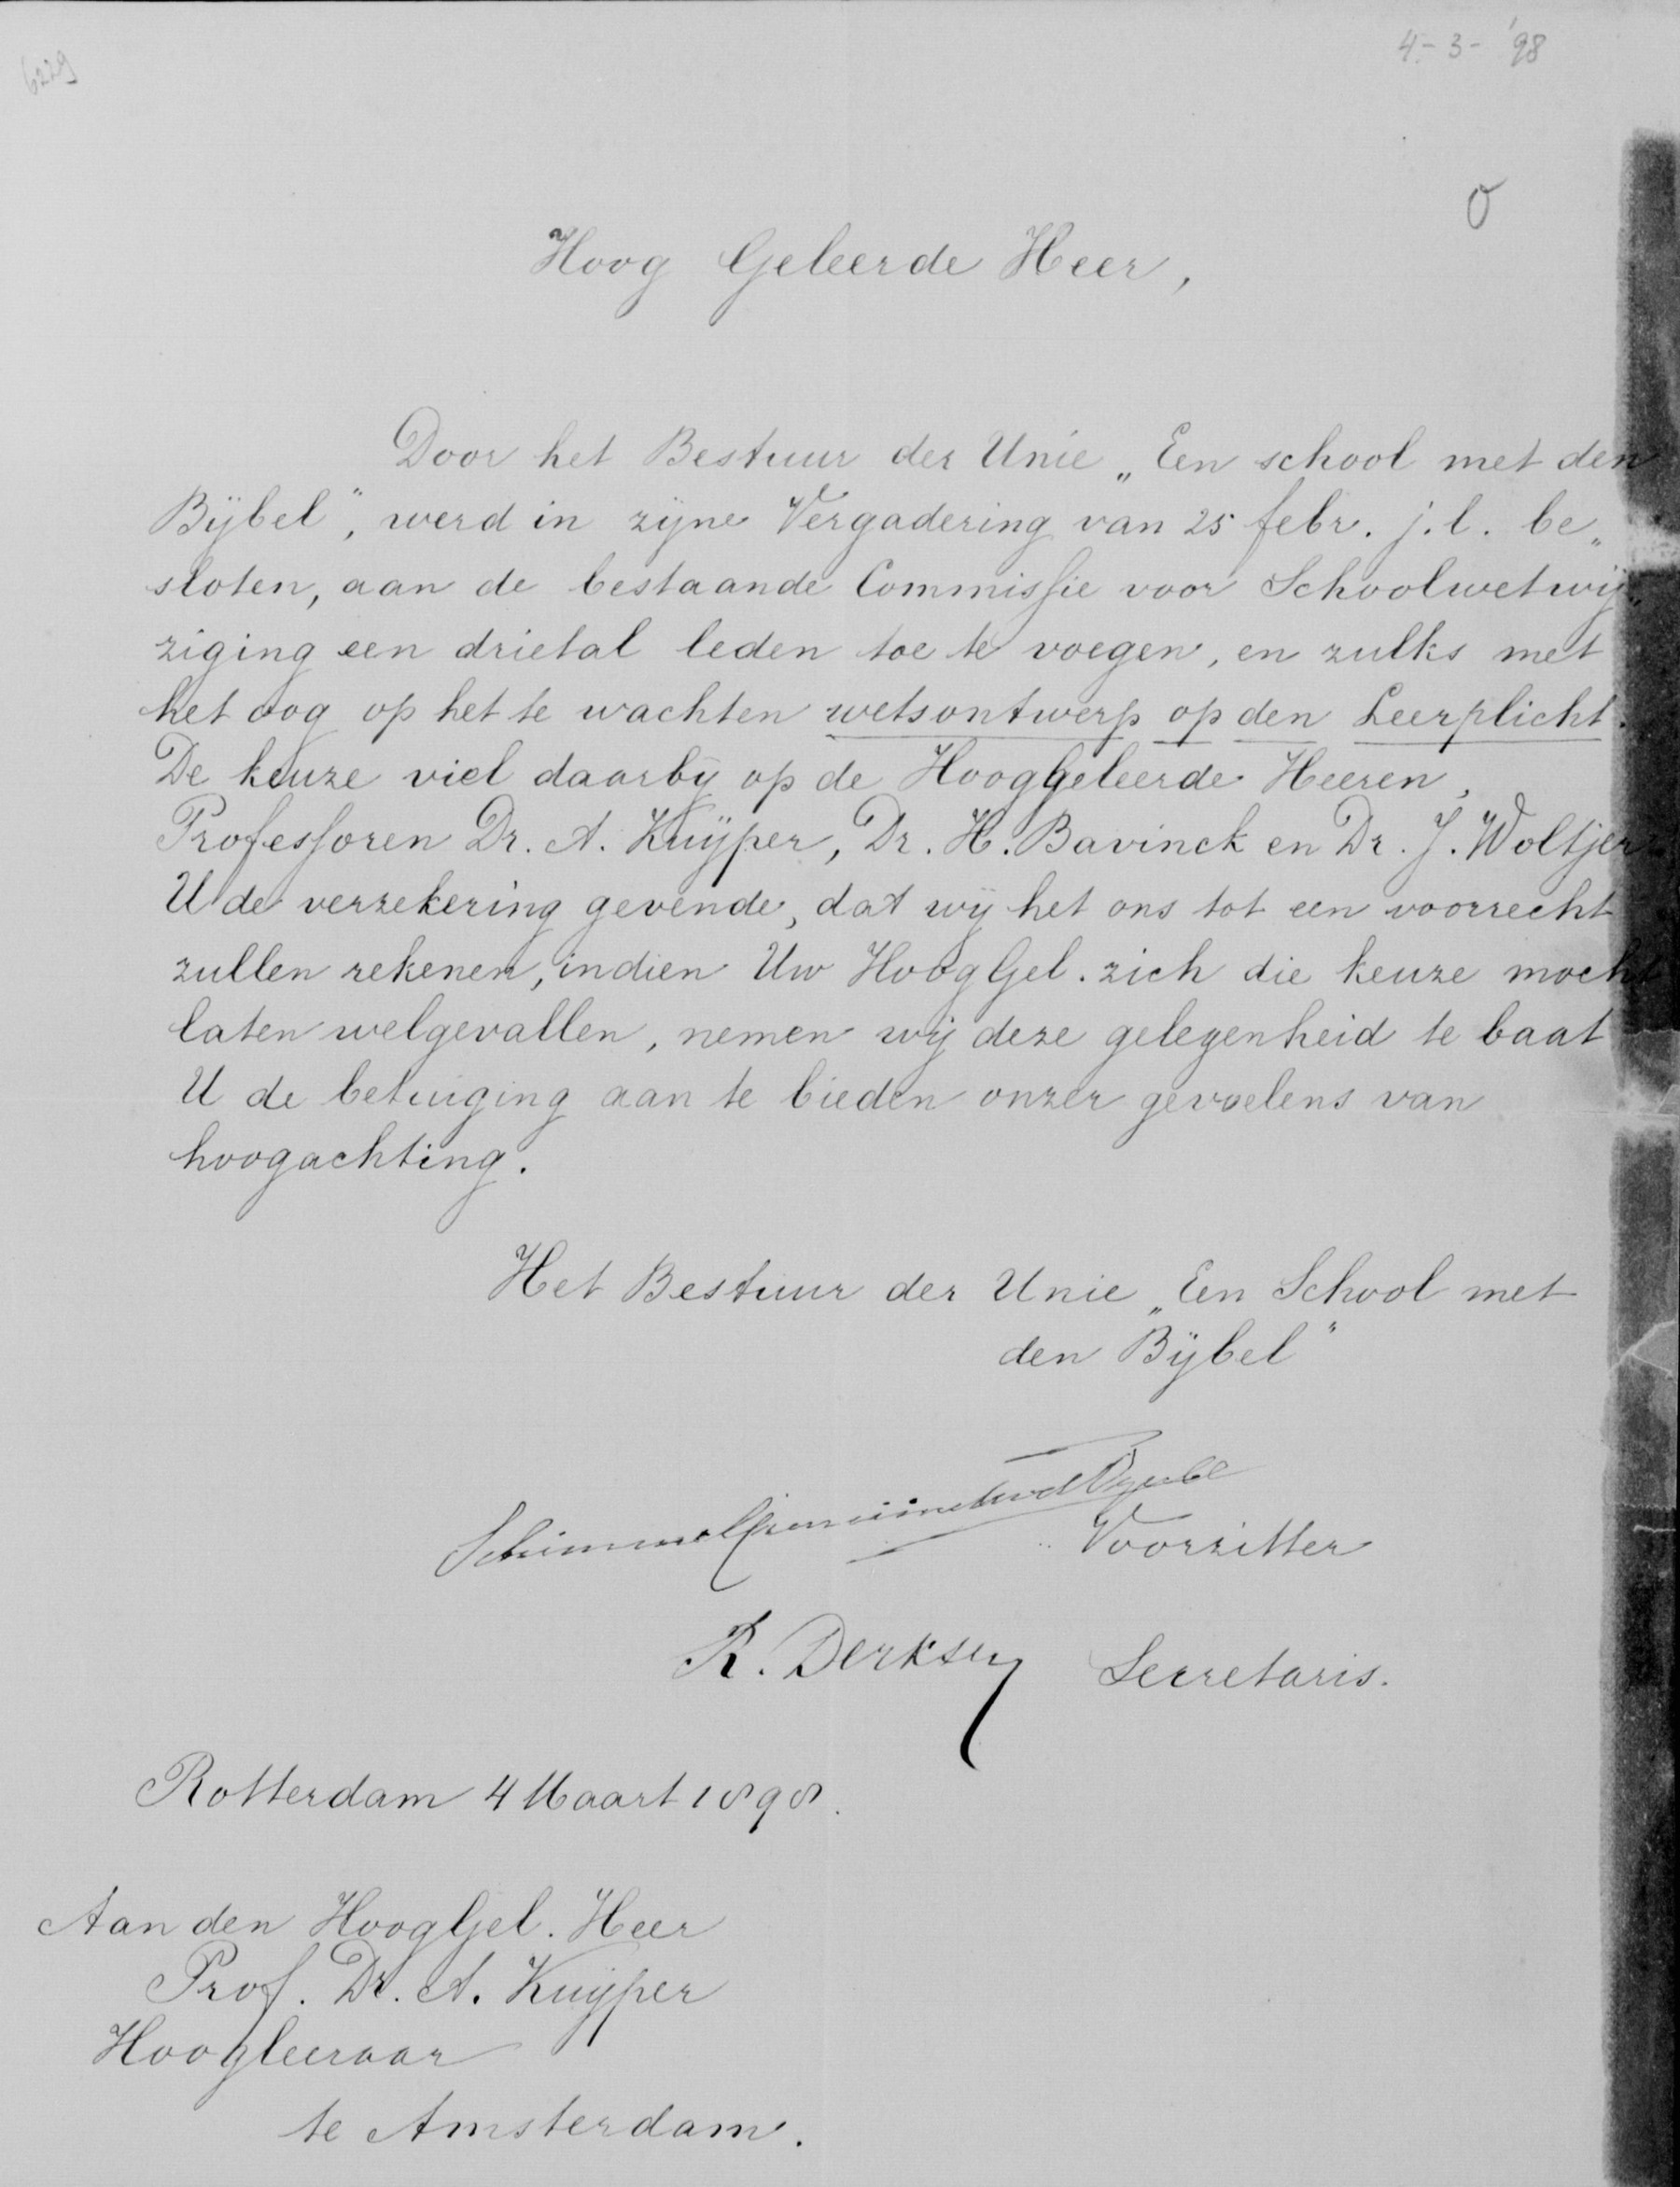 6229
4-3-'98
Hoog Geleerde Heer,
Door het Bestuur der Unie „Een school met den
Bijbel", werd in zijne Vergadering van 25 febr. j.l. be„
sloten, aan de bestaande Commissie voor Schoolwetwij„
ziging een drietal leden toe te voegen, en zulks met
het oog op het te wachten wetsontwerp op den Leerplicht.
De keuze viel daarbij op de HoogGeleerde Heeren,
Professoren Dr. A. Kuijper, Dr. H. Bavinck en Dr. J. Woltjer
U de verzekering gevende, dat wij het ons tot een voorrecht
zullen rekenen, indien Uw HoogGel. zich die keuze mocht
laten welgevallen, nemen wij deze gelegenheid te baat
U de betuiging aan te bieden onzer gevoelens van
hoogachting.
Het Bestuur der Unie „Een School met
den Bijbel"
Voorzitter
R. Derksen Secretaris.
Rotterdam 4 Maart 1898.
Aan den HoogGel. Heer
Prof. Dr. A. Kuijper
Hoogleeraar
te Amsterdam.